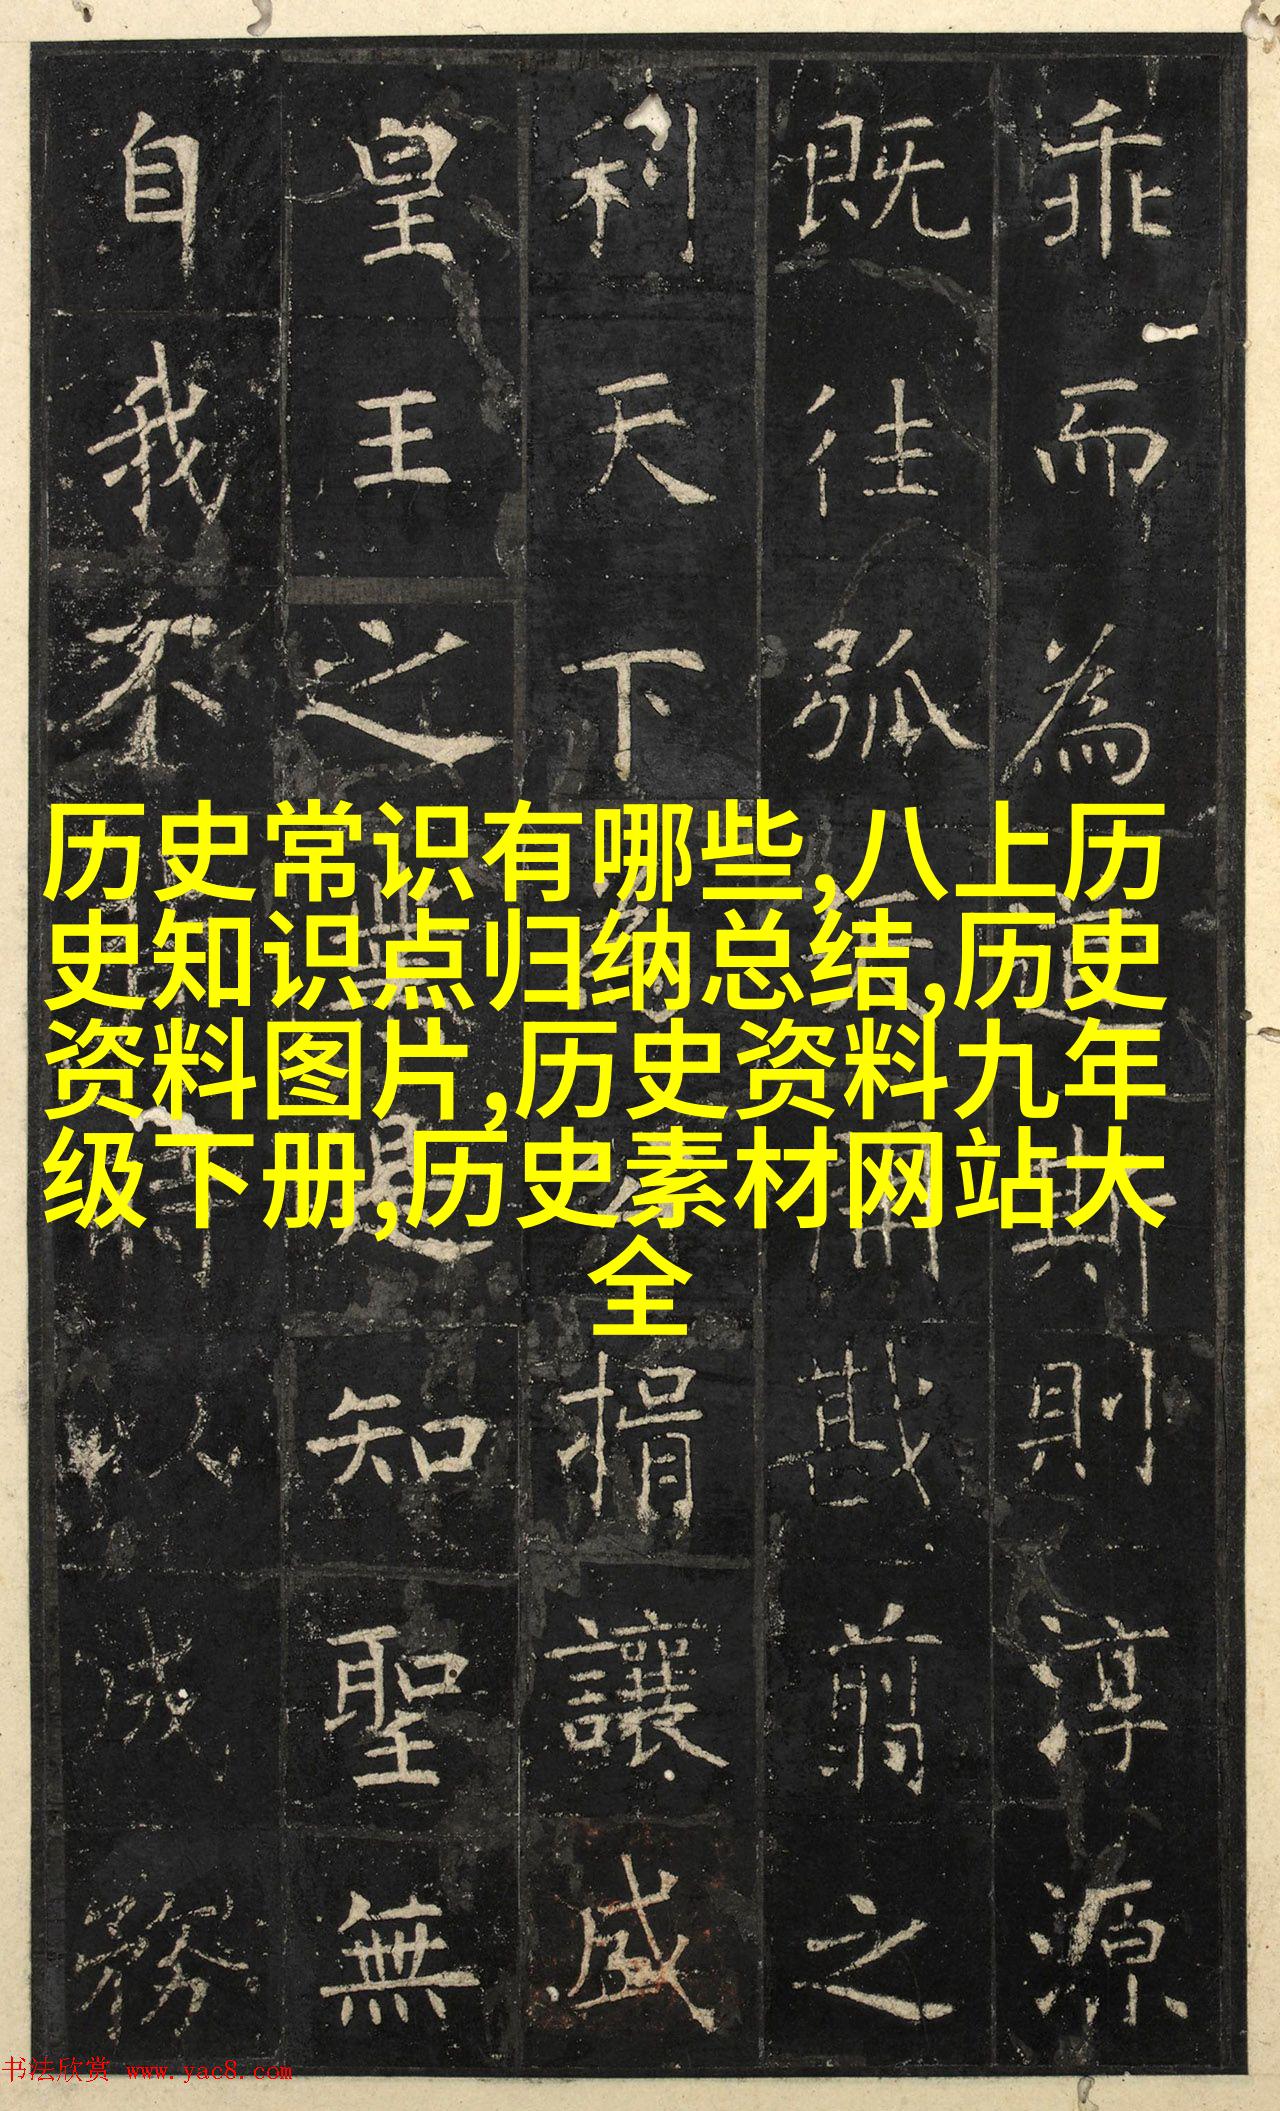 历史常识有哪些,八上历
史知识点归纳总结,历史
资料图片,历史资料九年
级下册,历史素材网站大
全
乖而為道斯則淳源
既往弧戡翦之
利天下捐讓盛
皇王之是知聖無
自我不以成務
书法欣赏 www.yac8.com